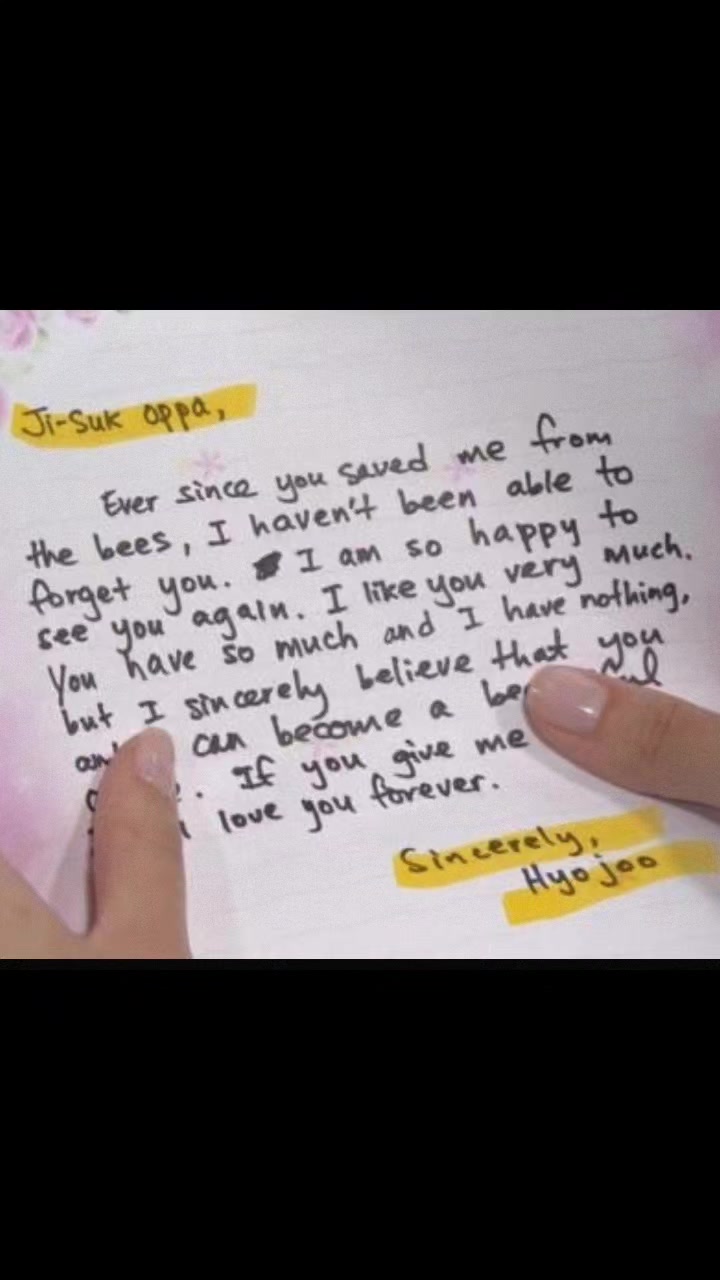 Ji-Suk oppa,
Ever since you saved me from
the bees, I haven't been able to
forget you. I am so happy to
see you again. I like you very much.
You have so much and I have nothing,
but I sincerely believe that you
can become a
If you give me
love you forever.
Sincerely,
Hyojoo